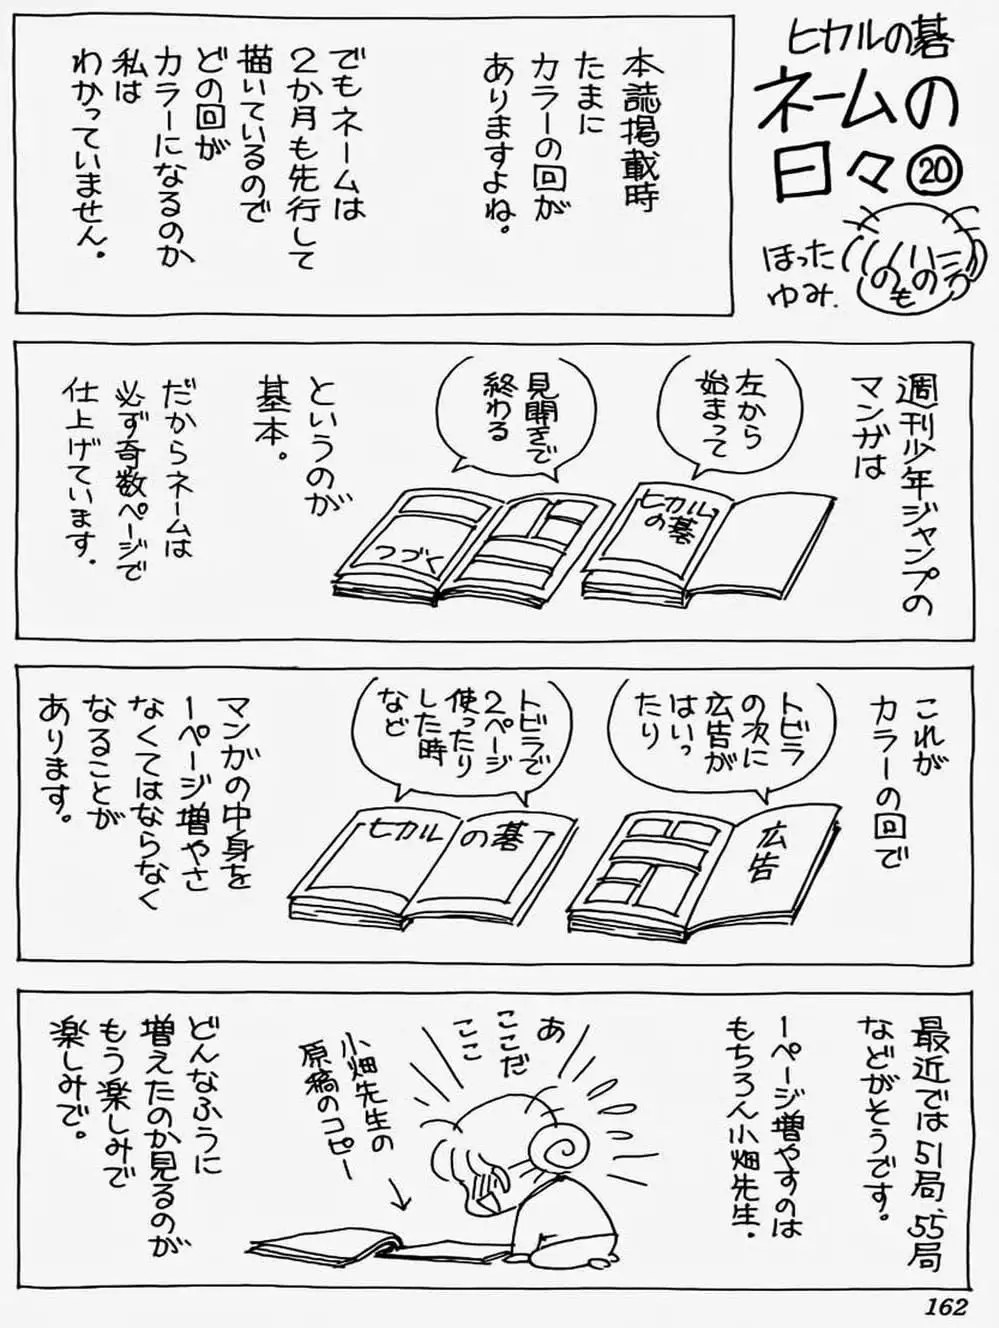 ヒカルの碁
ネームの
日々⑳
ほった
ゆみ.
へのへの
もの
本誌掲載時
たまに
カラーの回が
ありますよね。
でもネームは
2か月も先行して
描いているので
どの回が
カラーになるのか
私は
わかっていません。
週刊少年ジャンプの
マンガは
左から
始まって
見開きで
終わる
ヒカル
の碁
つづく
というのが
基本。
だからネームは
必ず奇数ページで
仕上げています.
これが
カラーの回で
トビラ
の次に
広告が
はいっ
たり
トビラで
2ページ
使ったり
した時
など
広告
ヒカル の碁
マンガの中身を
1ページ増やさ
なくてはならなく
なることが
あります。
最近では51局、55局
などがそうです。
1ページ増やすのは
もちろん小畑先生.
あ
ここだ
ここ
小畑先生の
原稿のコピー
どんなふうに
増えたのか見るのが
もう楽しみで
楽しみで。
162